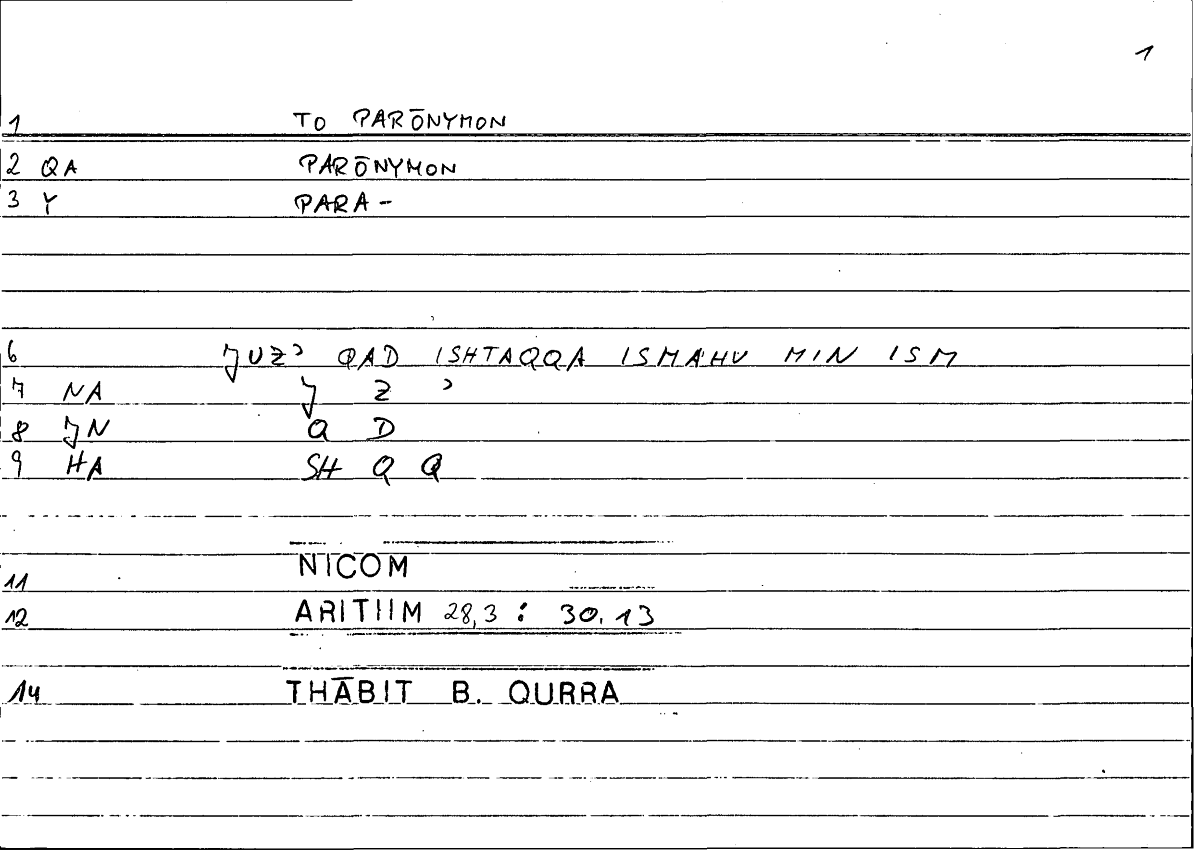 1
1 TO PARŌNYMON
2 QA PARŌNYMON
3 Y PARA-
6 JUZʾ QAD ISHTAQQA ISMAHU MIN ISM
7 NA J Z ʾ
8 JN Q D
9 HA SH Q Q
11 NICOM
12 ARITIIM 28,3 : 30.13
14 THĀBIT B. QURRA